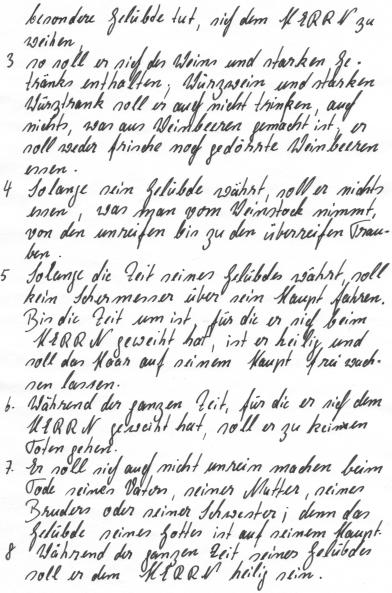 besondere Gelübde tut, sich dem HERRN zu
weihen,
3 so soll er sich des Weins und starken Ge-
tränks enthalten; Würzwein und starken
Würztrank soll er auch nicht trinken, auch
nichts, was aus Weinbeeren gemacht ist; er
soll weder frische noch gedörrte Weinbeeren
essen.
4 Solange sein Gelübde währt, soll er nichts
essen, was man vom Weinstock nimmt,
von den unreifen bis zu den überreifen Trau-
ben.
5 Solange die Zeit seines Gelübdes währt, soll
kein Schermesser über sein Haupt fahren.
Bis die Zeit um ist, für die er sich beim
HERRN geweiht hat, ist er heilig und
soll das Haar auf seinem Haupt frei wach-
sen lassen.
6. Während der ganzen Zeit, für die er sich dem
HERRN geweiht hat, soll er zu keinen
Toten gehen.
7. Er soll sich auch nicht unrein machen beim
Tode seines Vaters, seiner Mutter, seines
Bruders oder seiner Schwester; denn das
Gelübde seines Gottes ist auf seinem Haupt.
8 Während der ganzen Zeit seines Gelübdes
soll er dem HERRN heilig sein.